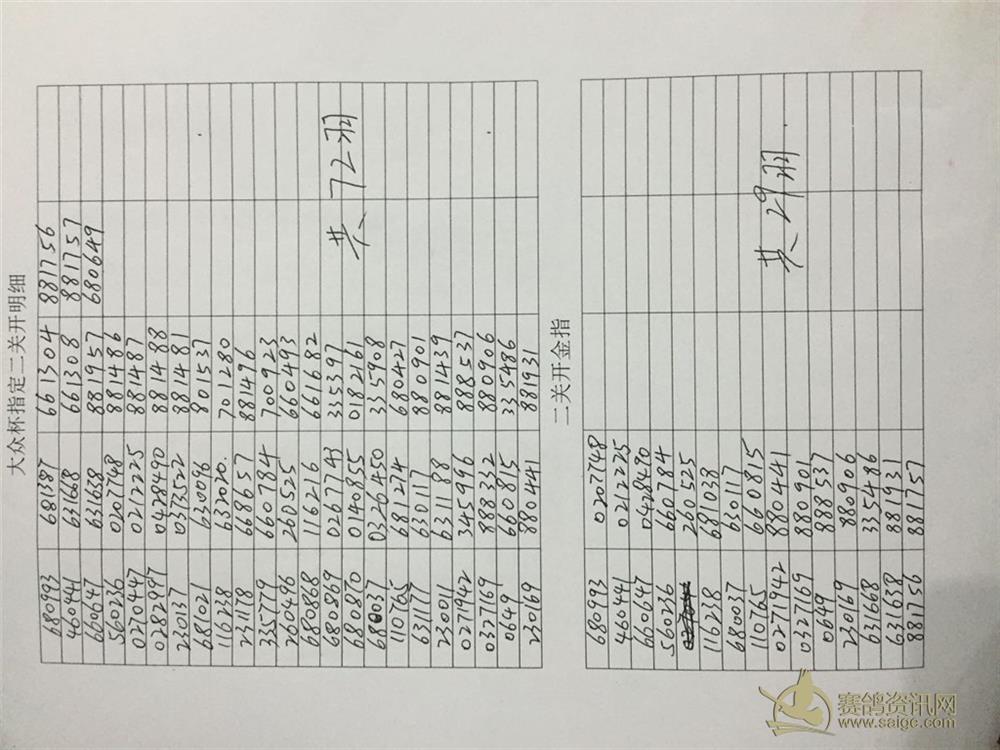 大众杯指定二关开明细
680993 681387 661304 881756
460441 631668 661308 881757
660647 631638 881957 680649
560236 0207748 881486
0270447 0212225 881487
0282997 0428490 881488
230137 0373522 881481
681021 630096 801537
116238 632020. 701280
231178 668657 881496
335779 660784 700923
200496 260525 660493
680868 116216 661682
680869 0267743 335397
680870 0140855 0182161
680037 0326450 335908
110765 681274 680427
631177 630117 880901
230011 631188 881439
0271942 345996 888537
0327169 888332 880906
0649 660815 335486
230169 880441 881931
共72羽
二关开金指
680993 0207748
460441 0212225
660647 0428490
560236 660784
260525
116238 681038
680037 630117
110765 660815
0271942 880441
0327169 880901
0649 888537
230169 880906
631668 335486
631638 881931
881756 881757
共29羽.
赛鸽资讯网
www.saigc.com